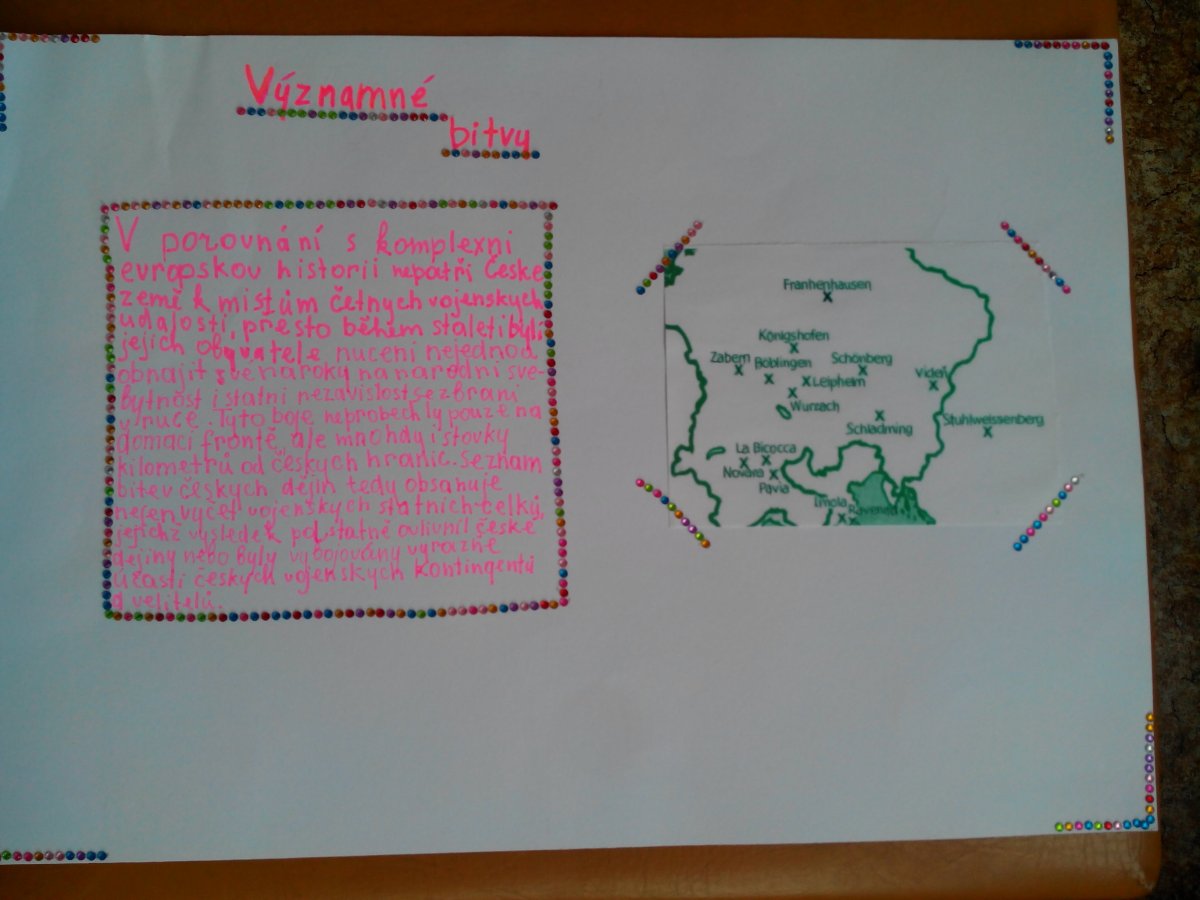 Významné
bitvy
V porovnání s komplexní
evropskou historií nepatří České
země k místům četných vojenských
událostí, přesto během staletí byli
jejich obyvatelé nuceni nejednou
obhájit své nároky na národní své-
bytnost i státní nezávislost se zbraní
v ruce. Tyto boje neproběhly pouze na
domácí frontě, ale mnohdy i stovky
kilometrů od českých hranic. Seznam
bitev českých dějin tedy obsahuje
nejen výčet vojenských státních celků,
jejichž výsledek podstatně ovlivnil české
dějiny nebo byly vybojovány výrazně
účastí českých vojenských kontingentů
a velitelů.
Franhenhausen
Königshofen
Zabern
Böblingen
Schönberg
Leipheim
Videň
Wurzach
Stuhlweissenberg
Schladming
La Bicocca
Novara
Pavia
Imola
Ravenna